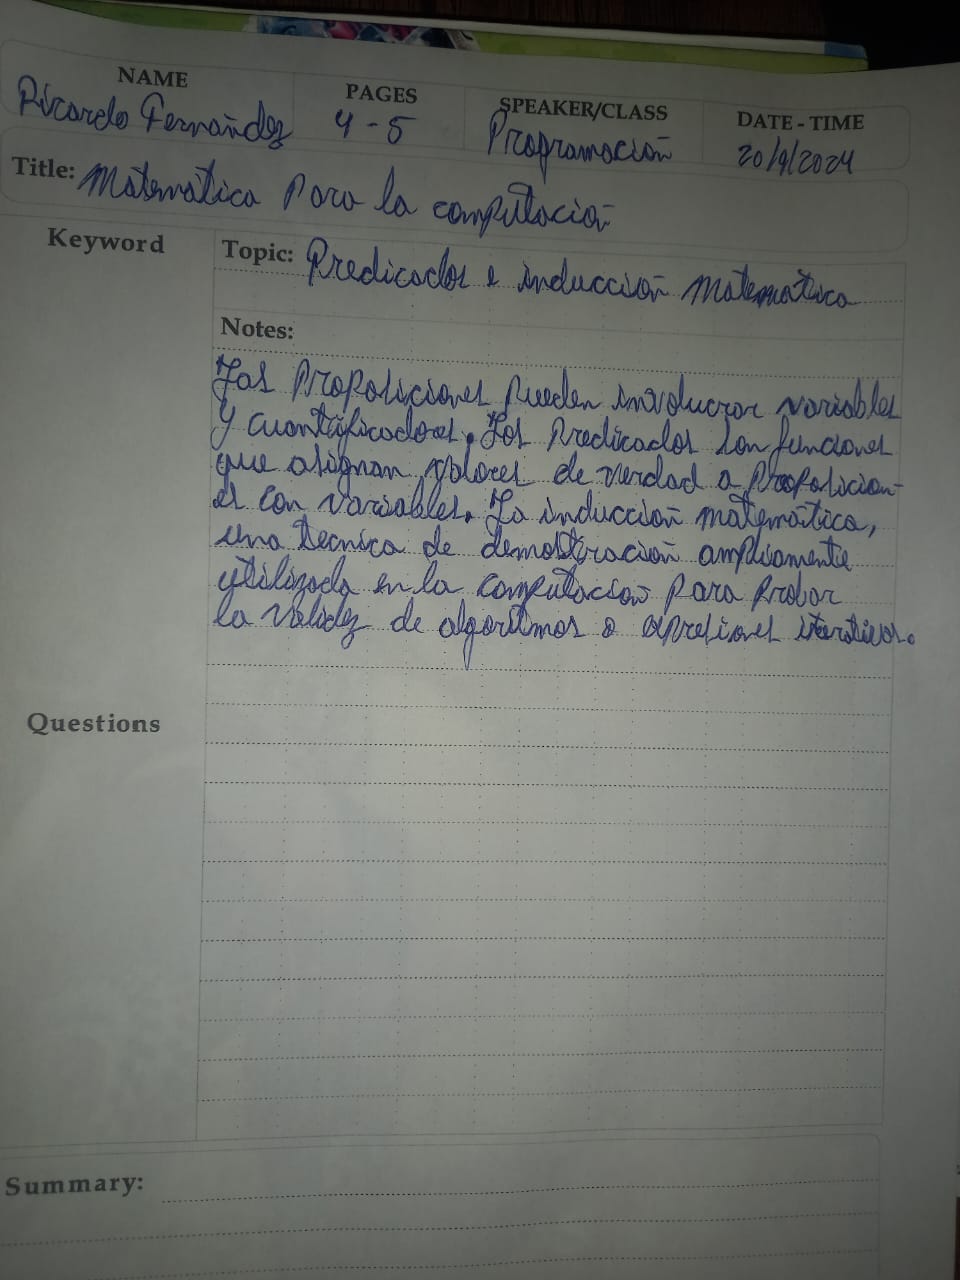 NAME PAGES SPEAKER/CLASS DATE - TIME
Ricardo Fernández 4 - 5 Programación 20/9/2024
Title: Matematica para la computación
Keyword
Topic: Predicados e inducción matematica
Notes:
Las proposiciones pueden involucrar variables
y cuantificadores. Los predicados son funciones
que asignan valores de verdad a proposicion-
es con variables. La inducción matemática,
una tecnica de demostración ampliamente
utilizada en la computación para probar
la validez de algoritmos o expresiones iterativos.
Questions
Summary: